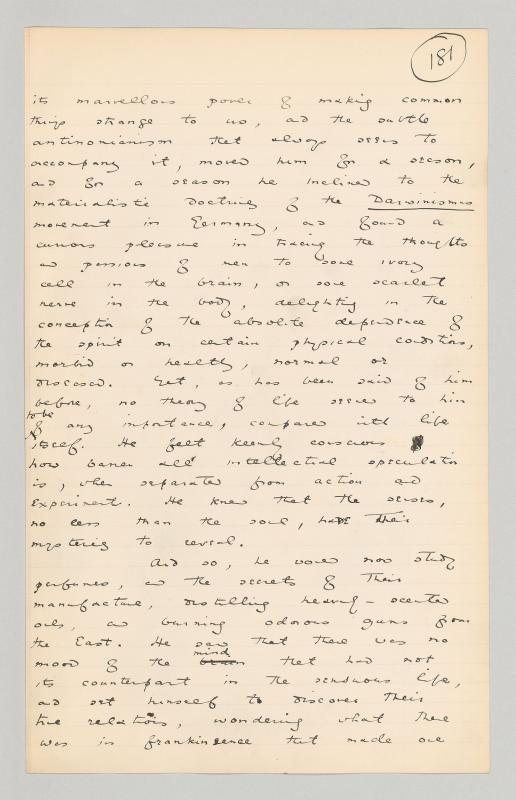 181
its marvellous power of making common
things strange to us, and the subtle
antinomianism that always seems to
accompany it, moved him for a season,
and for a season he inclined to the
materialistic doctrines of the Darwinismus
movement in Germany, and found a
curious pleasure in tracing the thoughts
and passions of men to some ivory
cell in the brain, or some scarlet
nerve in the body, delighting in the
conception of the absolute dependence of
the spirit on certain physical conditions,
morbid or healthy, normal or
diseased. Yet, as has been said of him
before, no theory of life seemed to him
to be
of any importance, compared with life
itself. He felt keenly conscious
how barren all intellectual speculation
is, when separated from action and
experiment. He knew that the senses,
no less than the soul, have their
mysteries to reveal.
And so, he would now study
perfumes, and the secrets of their
manufacture, distilling heavily-scented
oils, and burning odorous gums from
the East. He saw that there was no
mind
mood of the brain that had not
its counterpart in the sensuous life,
and set himself to discover their
true relations, wondering what there
was in frankincense that made one